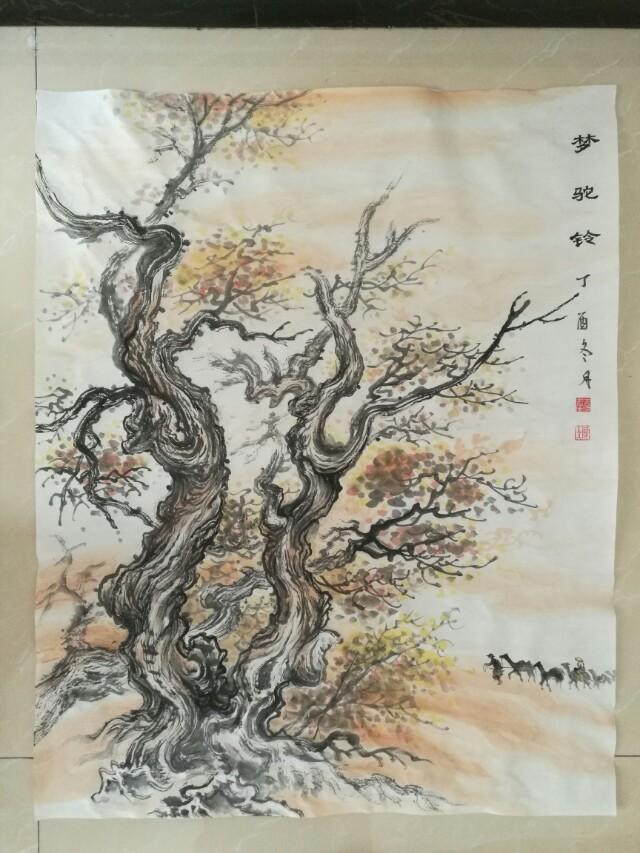 梦驼铃丁酉冬月